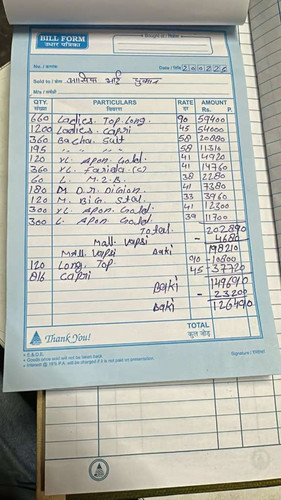 BILL FORM
उधार पत्रिका
Bought of / विक्रेता
No. / क्रमांक
Date / तिथि
Sold to / क्रेता आसिफ भाई दुकान
M/s / सर्वश्री
QTY. PARTICULARS RATE AMOUNT
संख्या विवरण दर Rs. P.
660 Ladies. Top. Long. 90 59400
1200 Ladies. Capri 45 54000
360 Bacha. Suit 58 20880
195 " " " 58 11310
120 XL. Apon. Gold. 41 4920
360 XL. Farida. (C) 41 14760
60 L. M.2.B. 38 2280
180 M D.R. Digion. 41 7380
120 M. BiG. Stal. 33 3960
300 XL. Apon. Gold. 41 12300
300 L. Apon. Gold. 39 11700
Total. 202890
Mall. Vapsi - 4680
Baki 198210
Mall. Vapsi
120 Long. Top. 90 - 10800
816 Capri 45 - 37720
Baki 149690
- 23200
Baki 126490
TOTAL
कुल जोड़
Thank You!
Signature / हस्ताक्षर
• E.&.O.E.
• Goods once sold will not be taken back.
• Interest @ 18% P.A. will be charged if it is not paid on presentation.